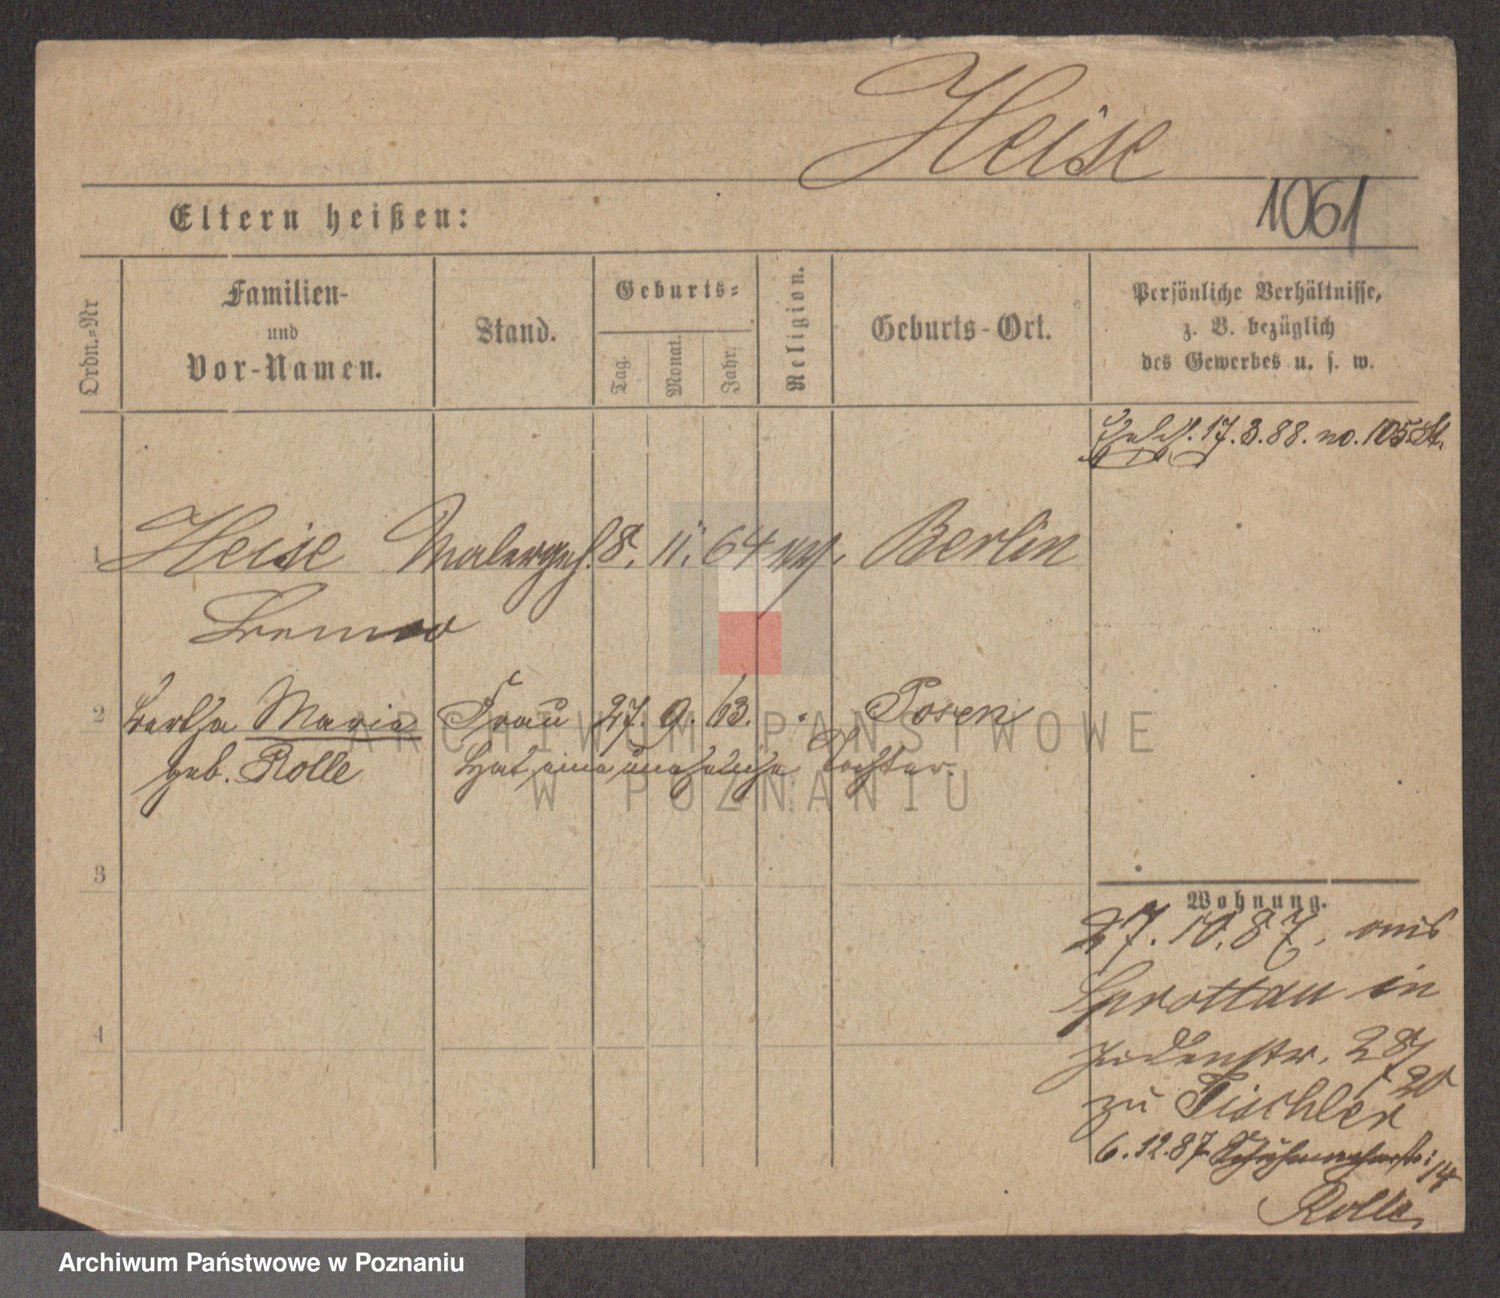 Heise
1061
Eltern heißen:
Ordn.=Nr
Familien-
und
Vor-Namen.
Stand.
Geburts=
Tag.
Monat.
Jahr.
Religion.
Geburts-Ort.
Persönliche Verhältnisse,
z. B. bezüglich
des Gewerbes u. s. w.
17.3.88. no. 105
1 Heise Malergeh. 8. 11. 64 Berlin
2 Bertha Marie Frau 27. 9. 63. Posen
geb. Rolle Hat eine uneheliche Tochter.
3
4
Wohnung.
27.10.87, aus
Sprottau in
Judenstr. 28/
20
zu Tischler
6.12.87 Schuhmacherstr: 14
Rolle.
ARCHIWUM PAŃSTWOWE
W POZNANIU
Archiwum Państwowe w Poznaniu